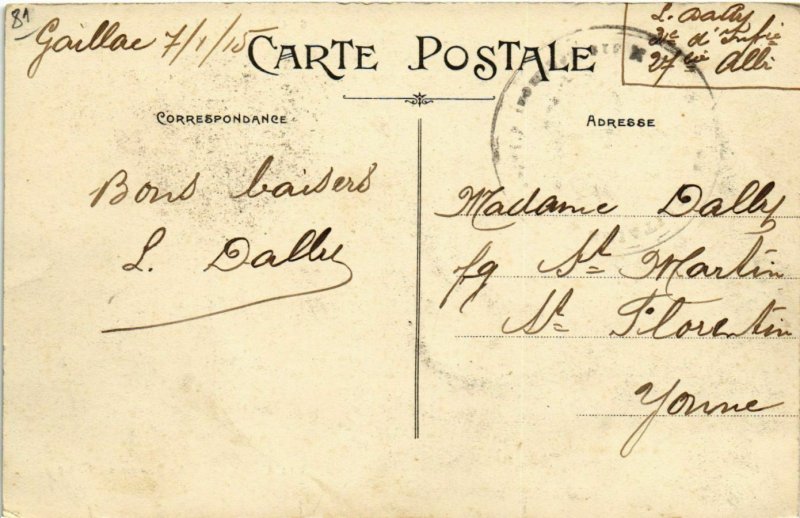 81
Gaillac 7/1/15
CARTE POSTALE
L. Dally
d'Infie
27 cie Albi
CORRESPONDANCE
ADRESSE
Bons baisers
L. Dally
Madame Dally
fg St Martin
St Florentin
Yonne